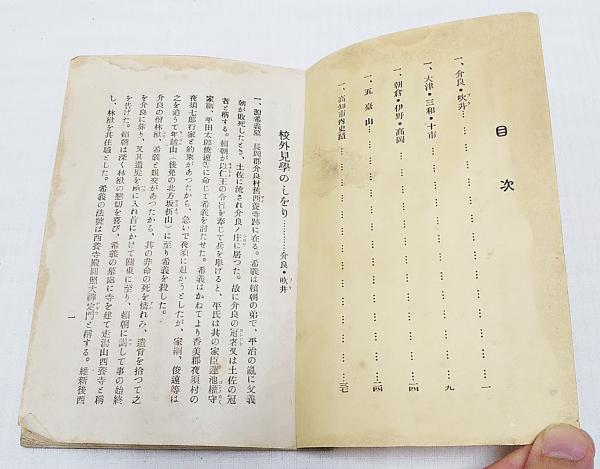 目次
一、介良・吹井 … 一
一、大津・三和・十市 … 九
一、朝倉・伊野・高岡 … 一四
一、五臺山 … 二四
一、高知市內史蹟 … 三七
校外見學のしをり………介良・吹井
一、源希義墓、長岡郡介良村舊西養寺跡に在る。希義は賴朝の弟で、平治の亂に父義
朝が敗死したとき、土佐に流され介良ノ庄に居つた。故に介良の冠者又は土佐の冠
者と稱する。賴朝が以仁王の令旨を奉じて兵を擧げると、平氏は其の家臣蓮池權守
家綱、平田太郎俊遠等に命じて希義を討たせた。希義はかねてより香美郡夜須村の
夜須七郎行家と約束があつたから、急いで夜須に赴かうとしたが、家綱、俊遠等は
之を追うて年越山（後免の北方坂折山）に至り希義を殺した。
介良の僧林猷、希義と親交があつたから、其の非命の死を憐れみ、遺骨を拾つて之
を介良に葬り、又其遺髮を頸に入れ首にかけて關東に至り、賴朝に謁して事の始終
を告げた。賴朝は深く林猷の懇切を喜び、希義の墓處に寺を建て走湯山西養寺と稱
し、林猷を其住職とした。希義の法號は西養寺殿圓照大禪定門と稱する。維新後西
一